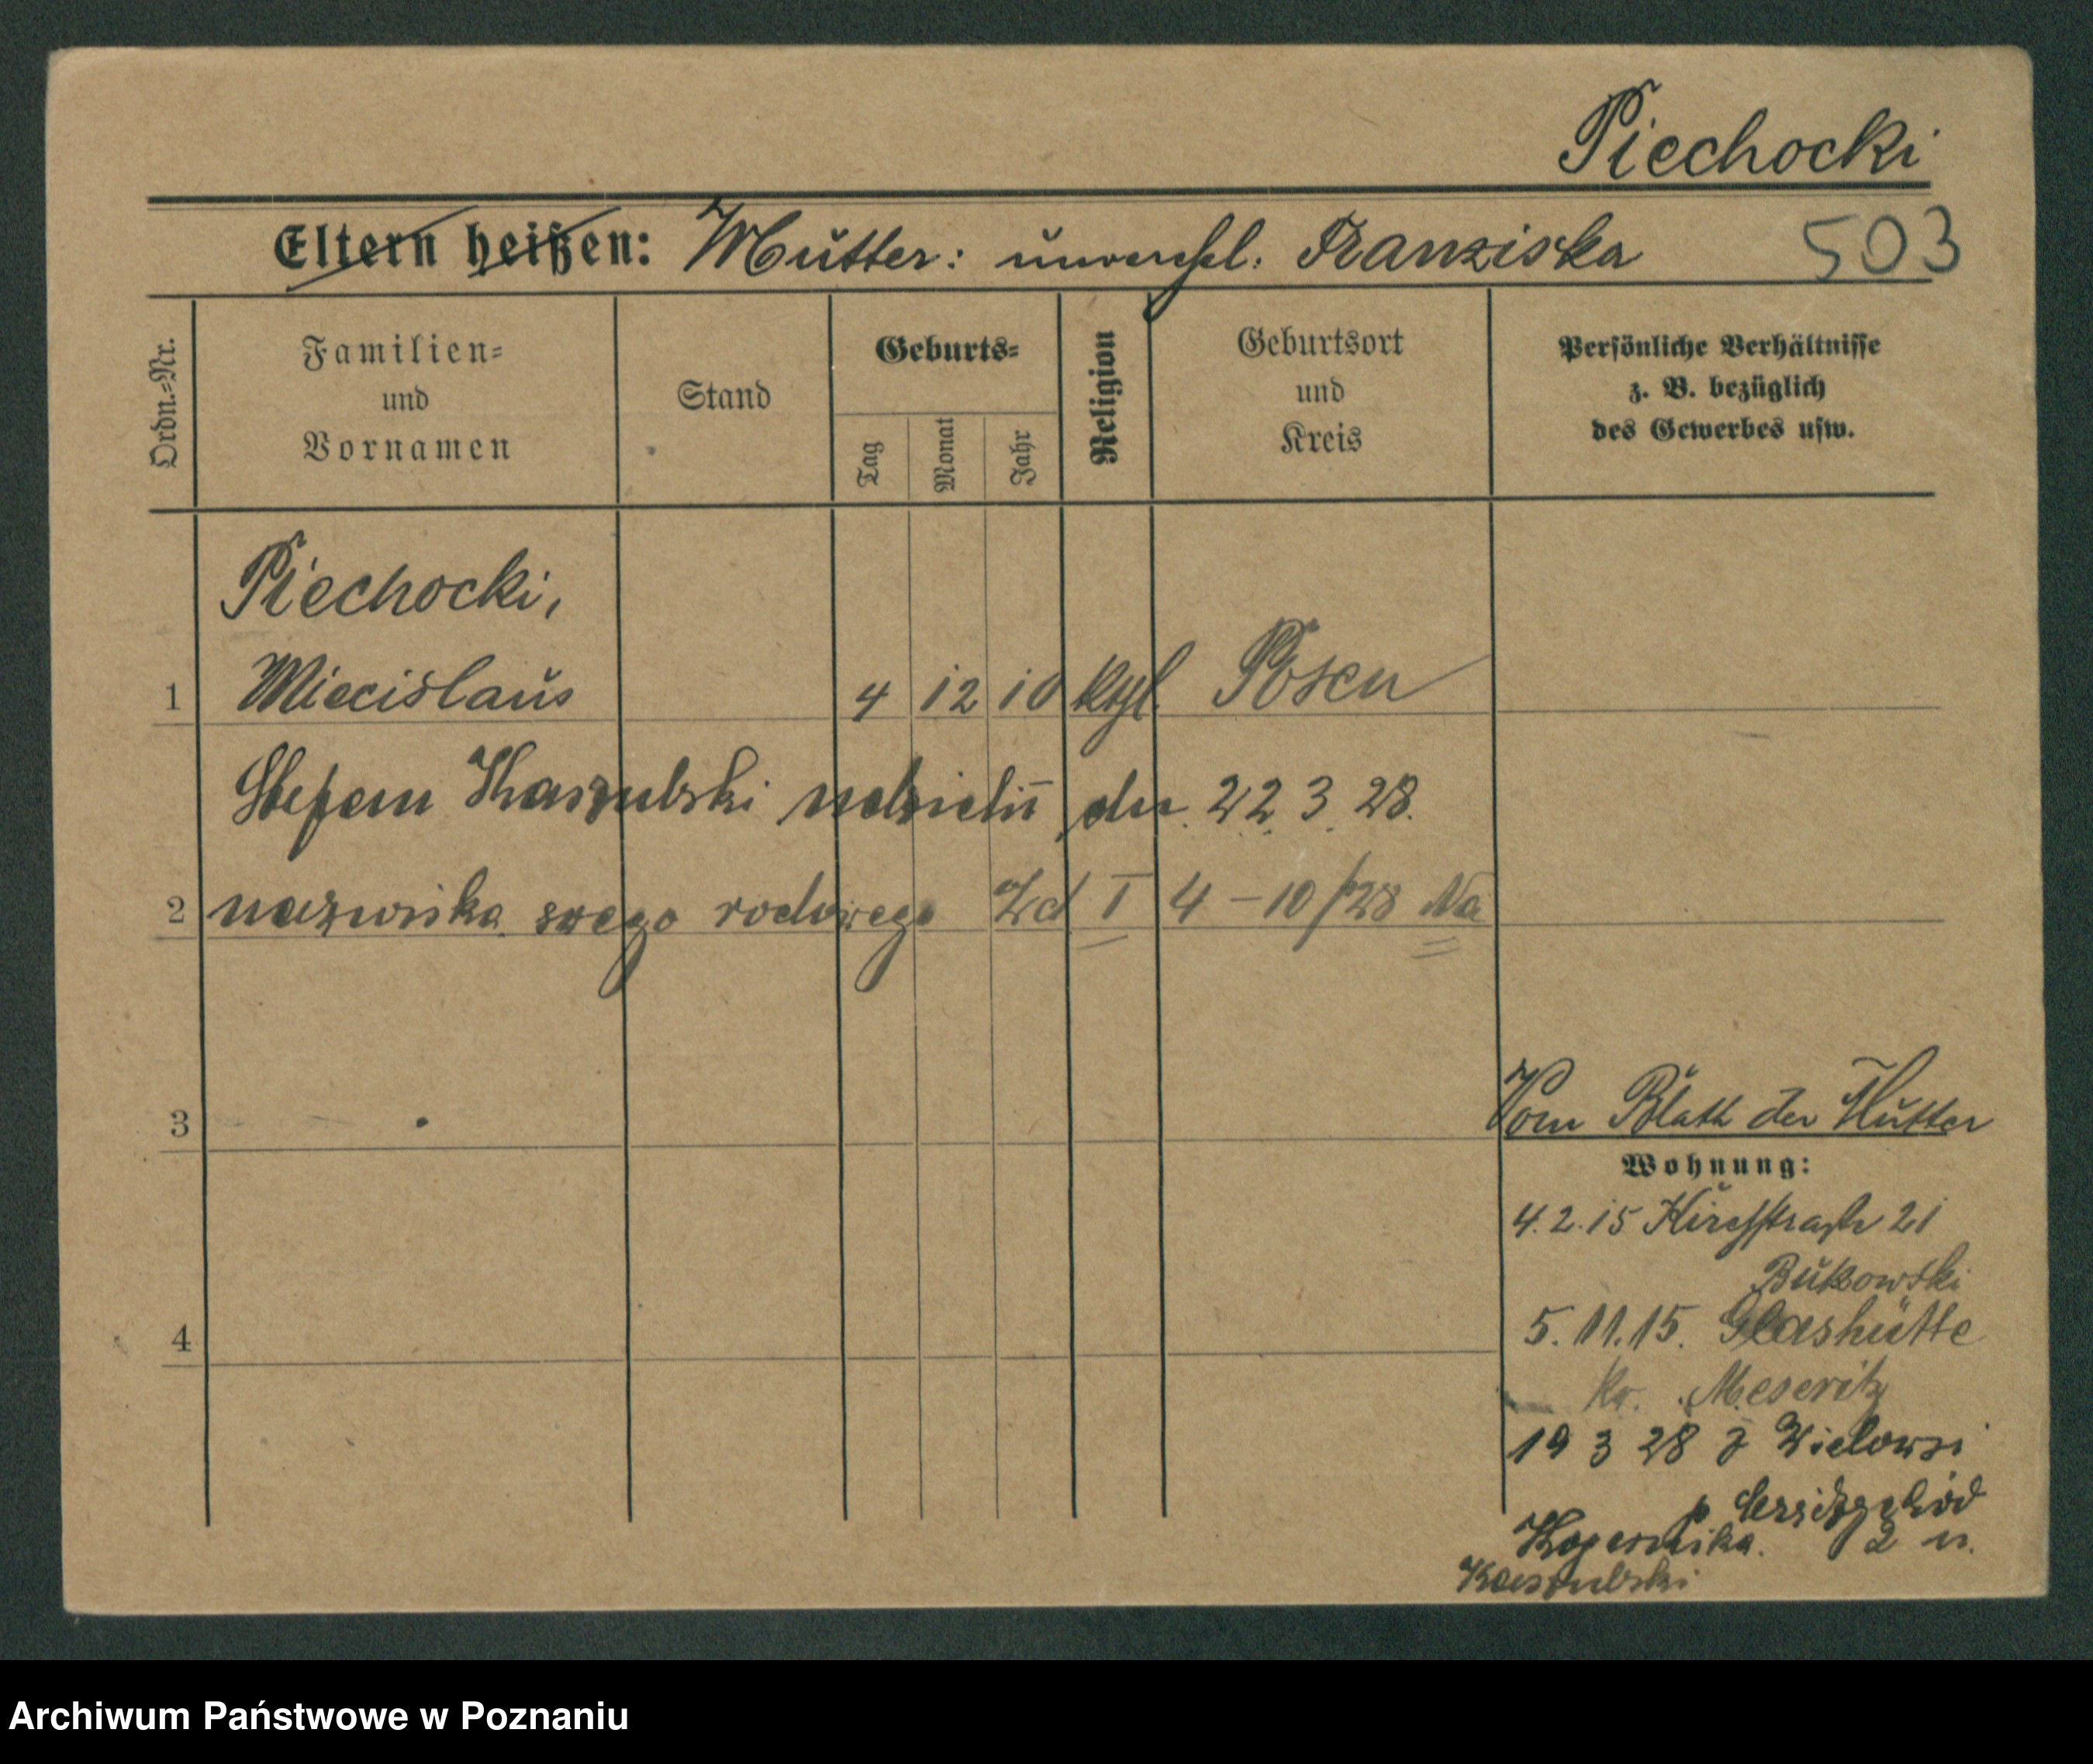 Piechocki
Eltern heißen: Mutter: unverehel. Franziska 503
Ordn.=Nr.
Familien=
und
Vornamen
Stand
Geburts=
Tag
Monat
Jahr
Religion
Geburtsort
und
Kreis
Persönliche Verhältnisse
z. B. bezüglich
des Gewerbes usw.
Piechocki,
1 Miecislaus 4 12 10 ktgl. Posen
Stefan Kaszubski udzielił dn. 22. 3. 28.
2 nazwiska swego rodowego Zd I 4-10/28 Na
3
Vom Blatt der Mutter
Wohnung:
4. 2. 15 Kirchstraße 21
Bukowski
5. 11. 15. Glashütte
4
Kr. Meseritz
19 3 28 z Wielowsi
p
Kopernika. 2 u.
Kaszubski
Archiwum Państwowe w Poznaniu